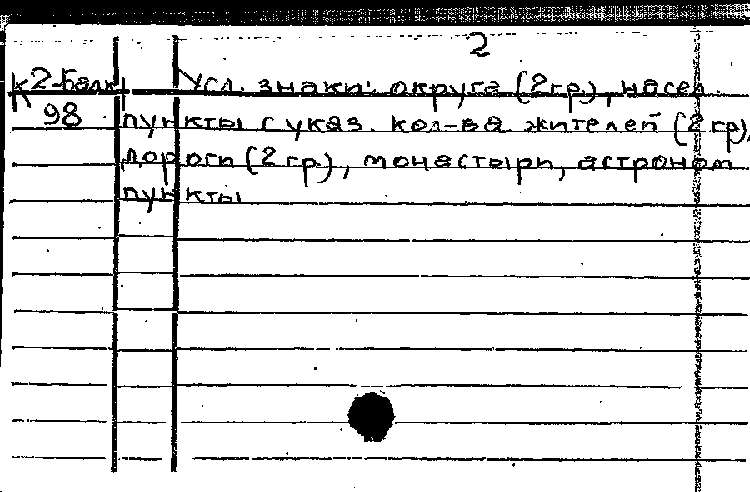 2
К 2-Балк Усл. знаки: округа (2 гр.), насел.
98 пункты с указ. кол-ва жителей (2 гр),
дороги (2 гр.), монастыри, астроном.
пункты